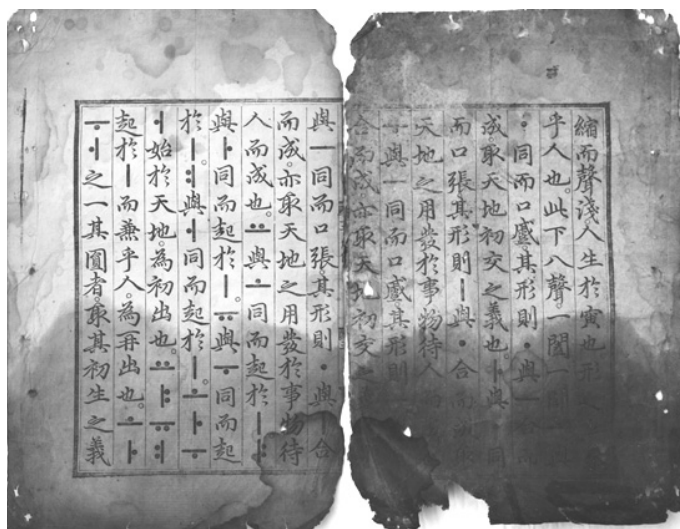 縮而聲淺人生於寅也形之
乎人也。此下八聲。一闔一闢
ㆍ同而口蹙其形則ㆍ與ㅡ合而
成取天地初交之義也。ㅏ與 同
而口張其形則ㅣ與ㆍ合而成取
天地之用發於事物待人而
ㅜ與ㅡ同而口蹙其形則
合而成亦取天地初交之
與ㅡ同而口張。其形則ㆍ與ㅣ合
而成。亦取天地之用發於事物待
人而成也。ㅛ與ㅗ同而起於ㅣ。ㅑ
與ㅏ同而起於ㅣ。ㅠ與ㅜ同而起
於ㅣ。ㅕ與ㅓ同而起於ㅣ。ㅗㅏㅜ
ㅓ始於天地。為初出也。ㅛㅑㅠㅕ
起於ㅣ而兼乎人。為再出也。ㅗㅏ
ㅜㅓ之一其圓者。取其初生之義